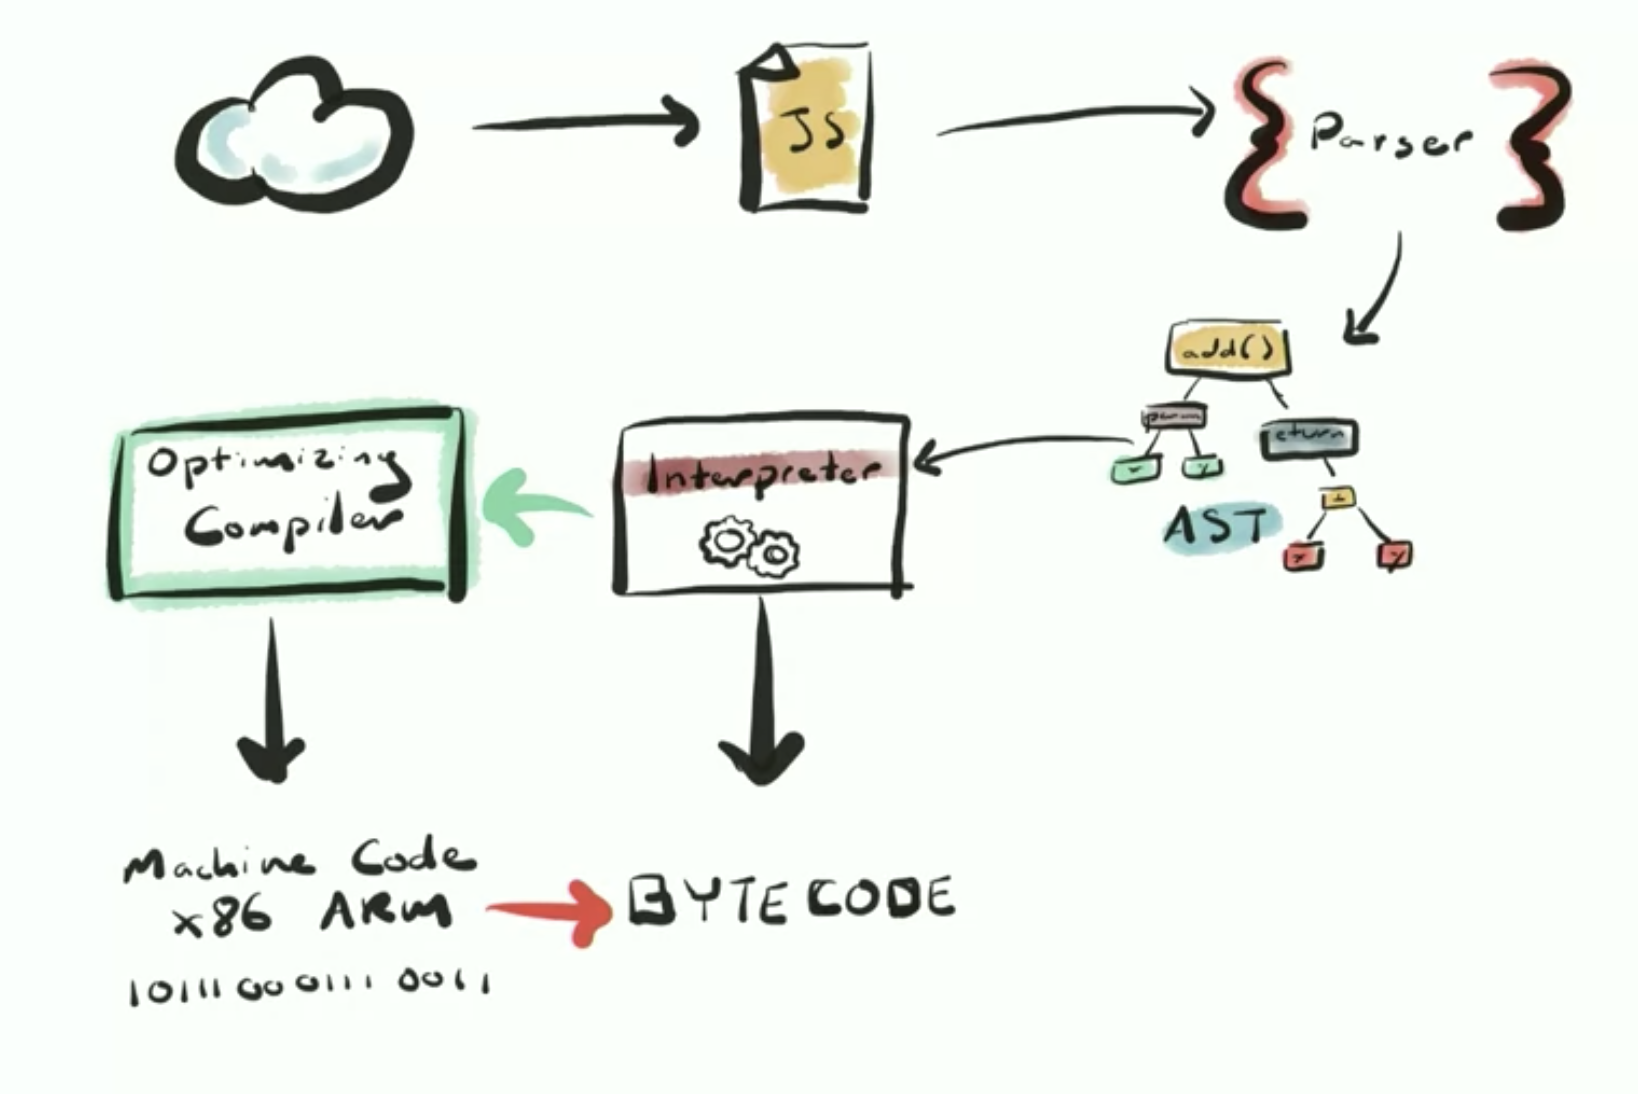 JS
Parser
add()
param
return
x
y
+
x
y
AST
Interpreter
Optimizing
Compiler
Machine Code
x86 ARM
10111000111 0011
BYTECODE